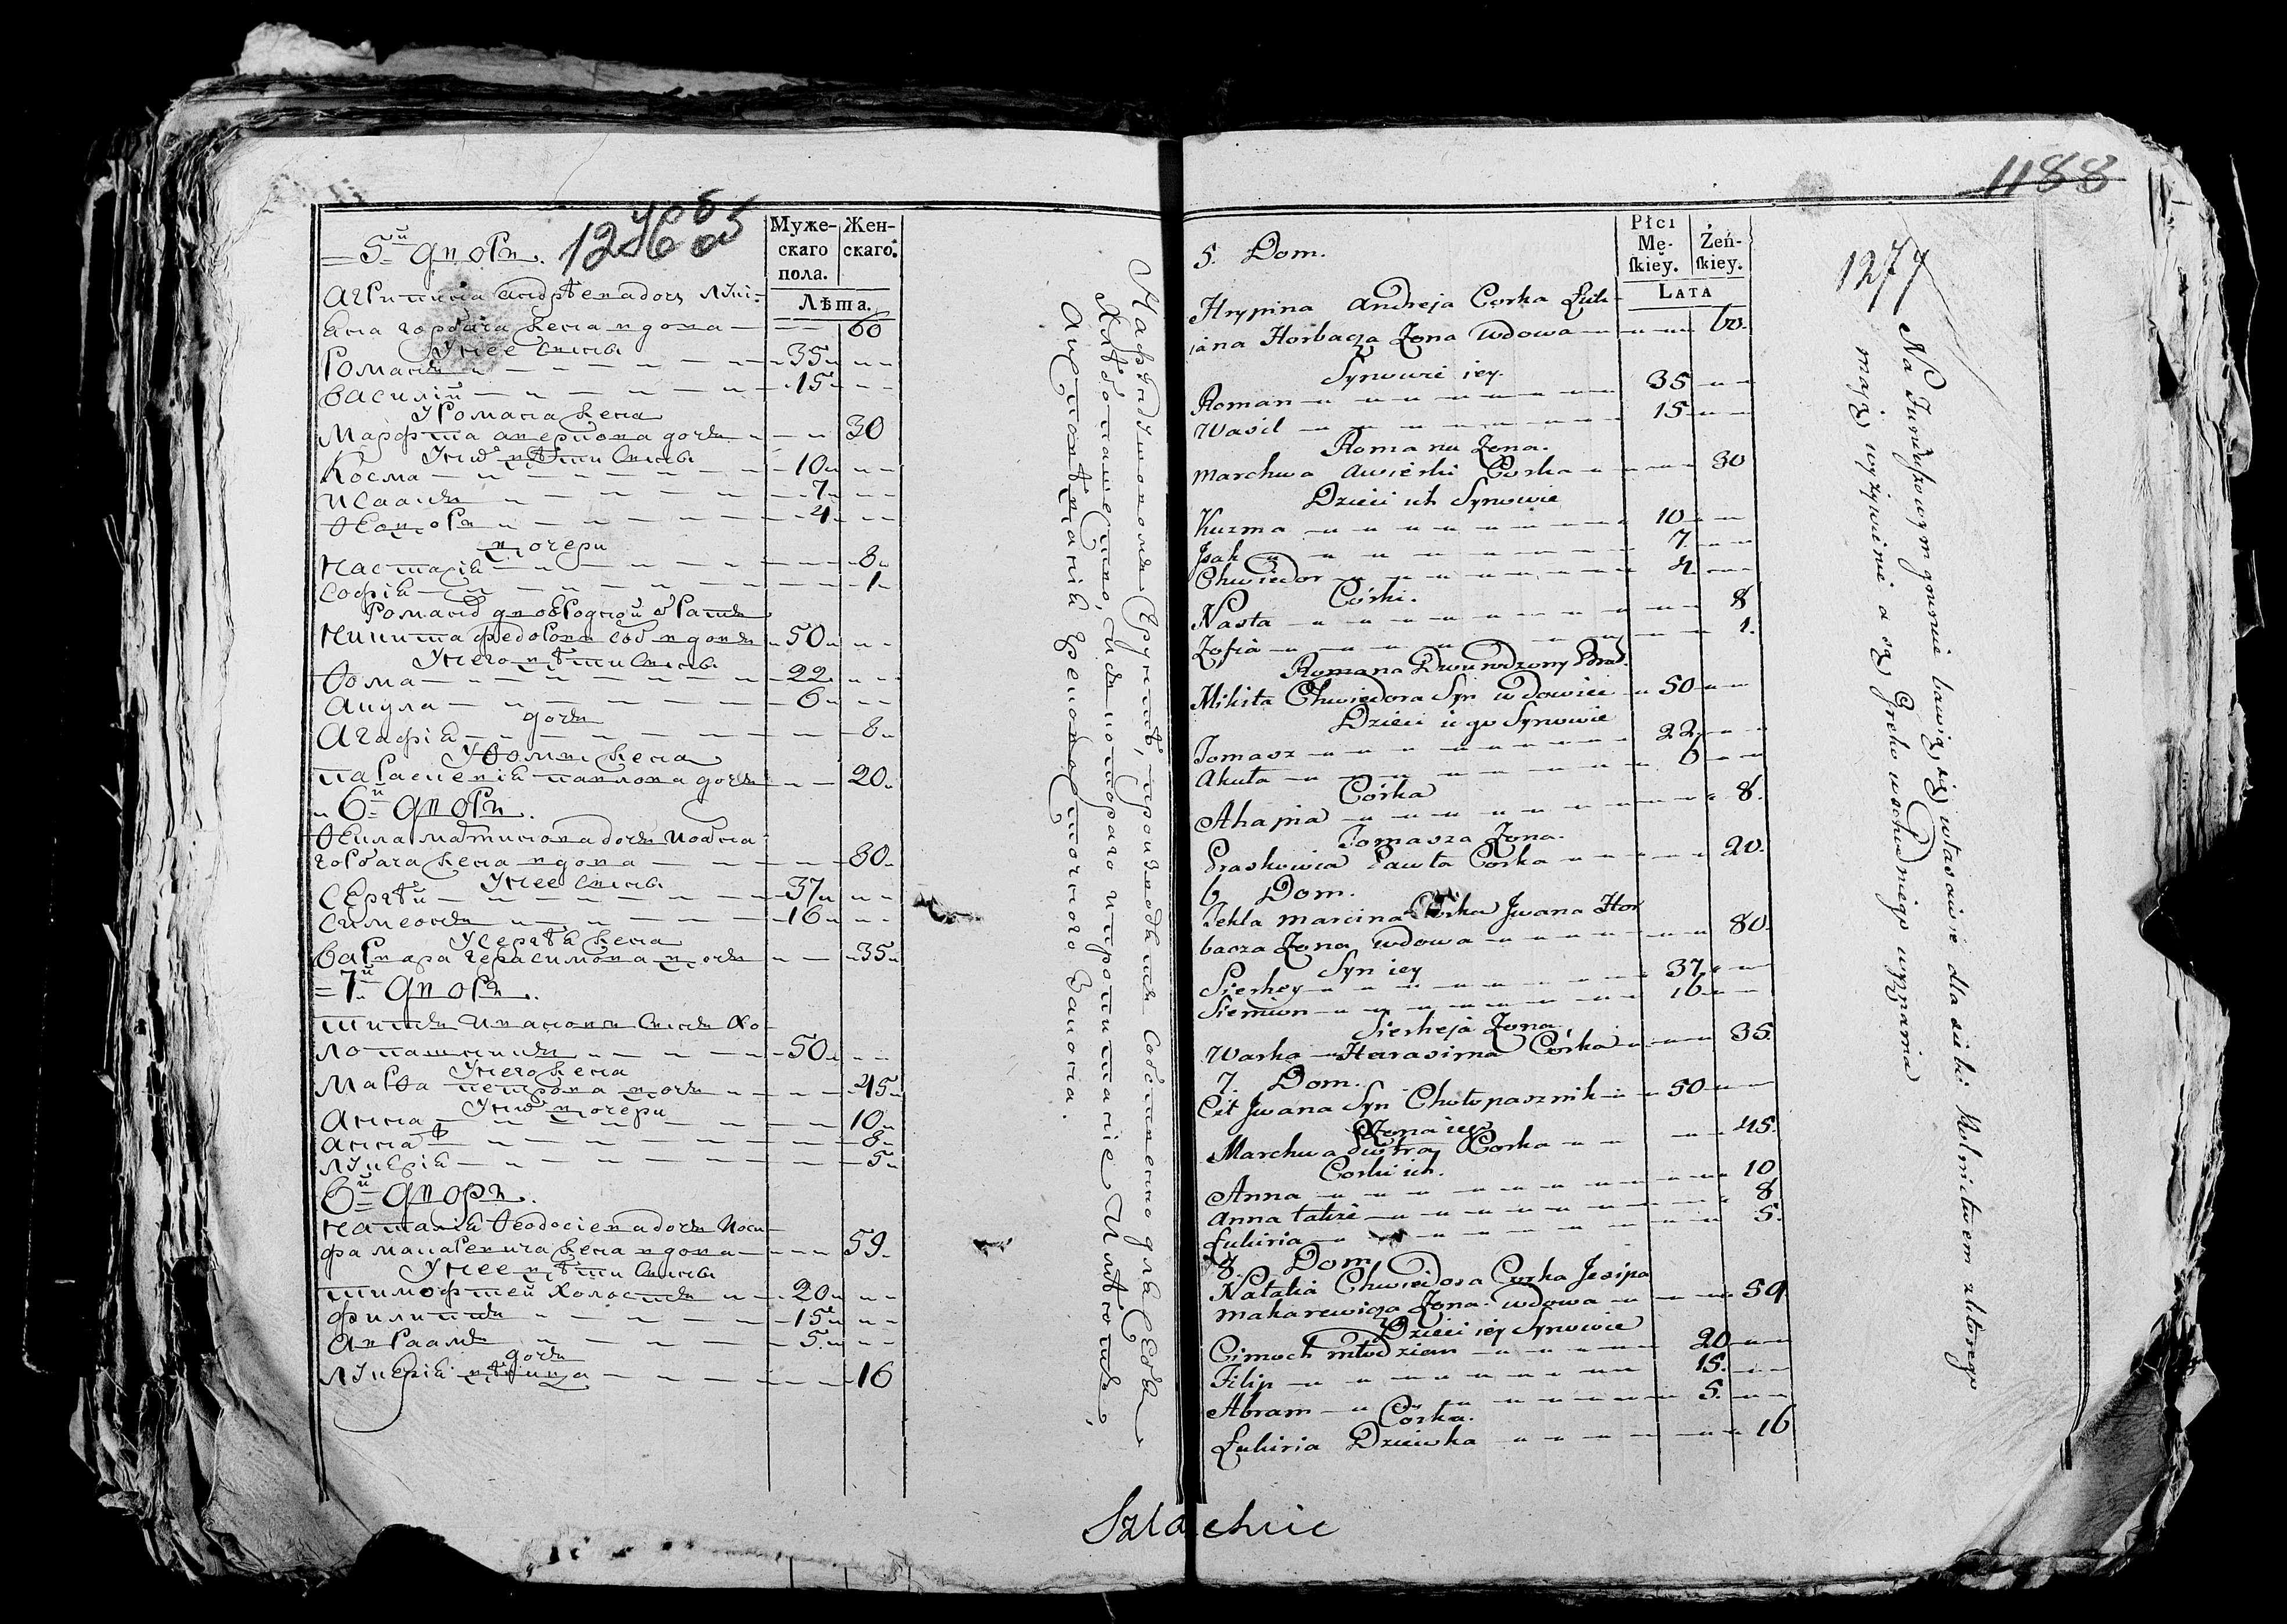 5й дворъ.
Муже-
скаго
пола.
Жен-
скаго.
Лѣта.
Агрипина андрѣева дочь луки-
яна горбача жена вдова 60
у нее сыны
Романъ 35
василій 15
у Романа жена
Марфта аверкова дочь 30
у них дѣти сыны
Косма 10
Исаакъ 7
Ѳеодоръ 4
дочери
настасія 8
софія 1
Романа двоюродной братъ
никита федоровъ сынъ вдовъ 50
у него дѣти сыны
Ѳома 22
акула 6
дочь
Агафія 8
у Ѳомы жена
параскевія павлова дочь 20
6й дворъ.
Ѳекла мартинова дочь ивана
горбача жена вдова 80
у нее сыны
сЕргѣй 37
симеонъ 16
у сергѣя жена
варвара герасимова дочь 35
7й дворъ.
титъ ивановъ сынъ хо-
лопашникъ 50
у него жена
марѳа петрова дочь 45
у них дочери
Анна 10
анна 8
лукерія 5
8й дворъ.
наталія Ѳеодосіева дочь иоси-
фа макаревича жена вдова 59
у нее дѣти сыны
тимофтей холостъ 20
филипъ 15
авраамъ 5
дочь
лукерія дѣвица 16
хлѣбопашество, изъ котораго и пропитаніе имѣютъ,
1188
1277
5. Dom.
Płci
Mę-
skiey.
Żeń-
skiey.
LATA
Hrypina Andreja Corka Łuk-
iana Horbacza Zona wdowa 60.
Synowie iey.
Roman 35
Wasil 15
Romana Zona.
Marchwa Awierki Corka 30
Dzieci ich Synowie
Kuzma 10
Jsak 7
Chwiedor 4
Córki.
Nasta 8
Zofia 1.
Romana Dwurodzony Brat.
Mikita Chwiedora Syn wdowiec 50
Dzieci iego Synowie
Tomasz 22
Akuła 6
Córka
Ahapia 8.
Tomasza Zona.
Praskowia Pawła Corka 20.
6 Dom.
Tekla Marcina Córka Jwana Hor
bacza Zona wdowa 80.
Syn iey
Sierhey 37
Siemion 16
Sierheja Zona.
Warka Harasima Córka 35.
7. Dom.
Cit Jwana Syn Chołopasznik 50
Zona iego
Marchwa Piotra Corka 45.
Corki ich.
Anna 10
Anna także 8
Łukiria 5.
8. Dom
Natalia Chwiedora Corka Jesipa
makarewicza Zona wdowa 59
Dzieci iey Synowie
Cimoch młodzian 20
Filip 15.
Abram 5.
Córka.
Łukiria Dziewka 16
Na Funduszowym grunie bawią się własciwie dla siebie Rolnictwem z ktorego
mają wyzywienie a są Greko wschodniego wyznania
Szlachcic